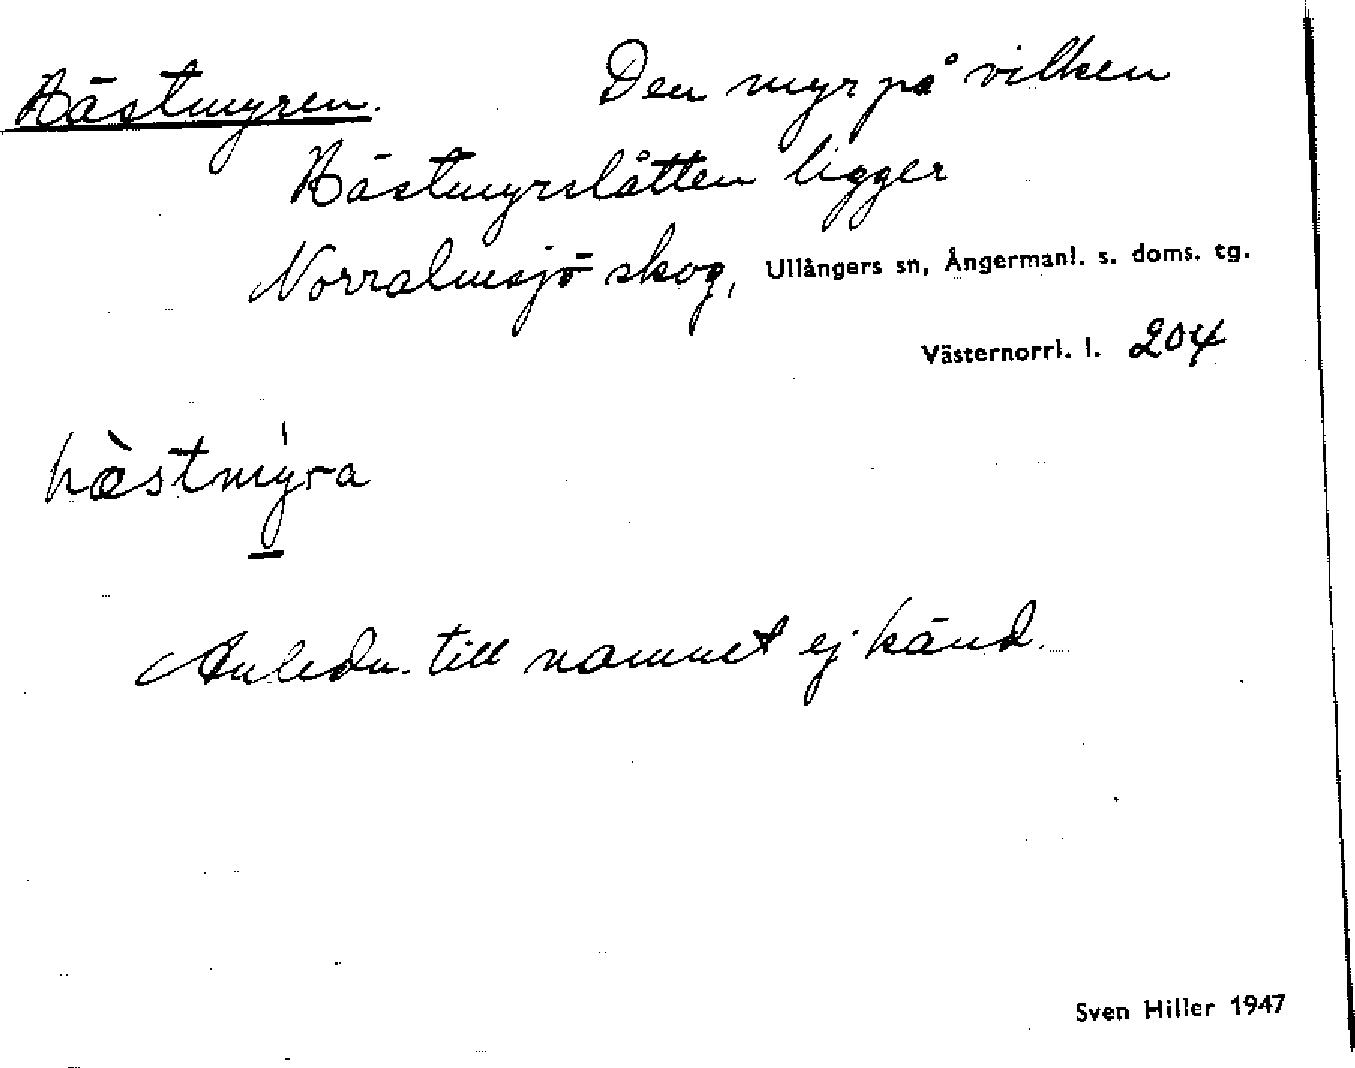 Hästmyren. Den myr på vilken
Hästmyrslåtten ligger
Norralmsjö skog, Ullångers sn, Ångermanl. s. doms. tg.
Västernorrl. l. 204
hæ̀stmý̲ra
Anledn. till namnet ej känd.
Sven Hiller 1947